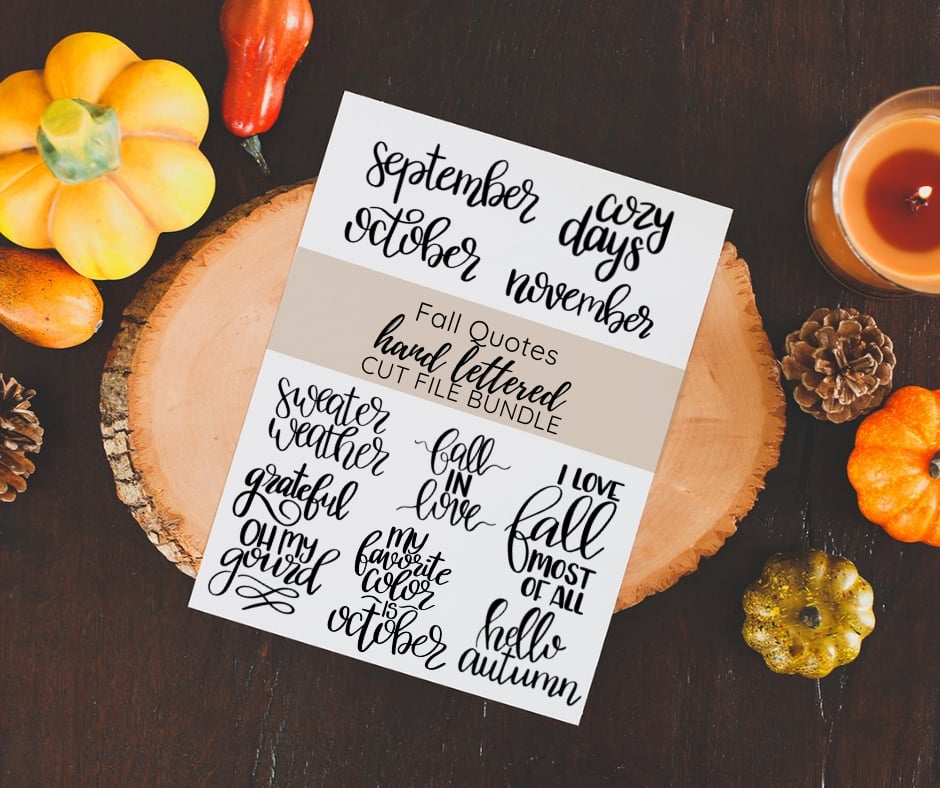 september
cozy
days
october
november
Fall Quotes
hand lettered
CUT FILE BUNDLE
sweater
weather
fall
IN
love
I LOVE
fall
MOST
OF ALL
grateful
OH MY
gourd
my
favorite
color
IS
october
hello
autumn